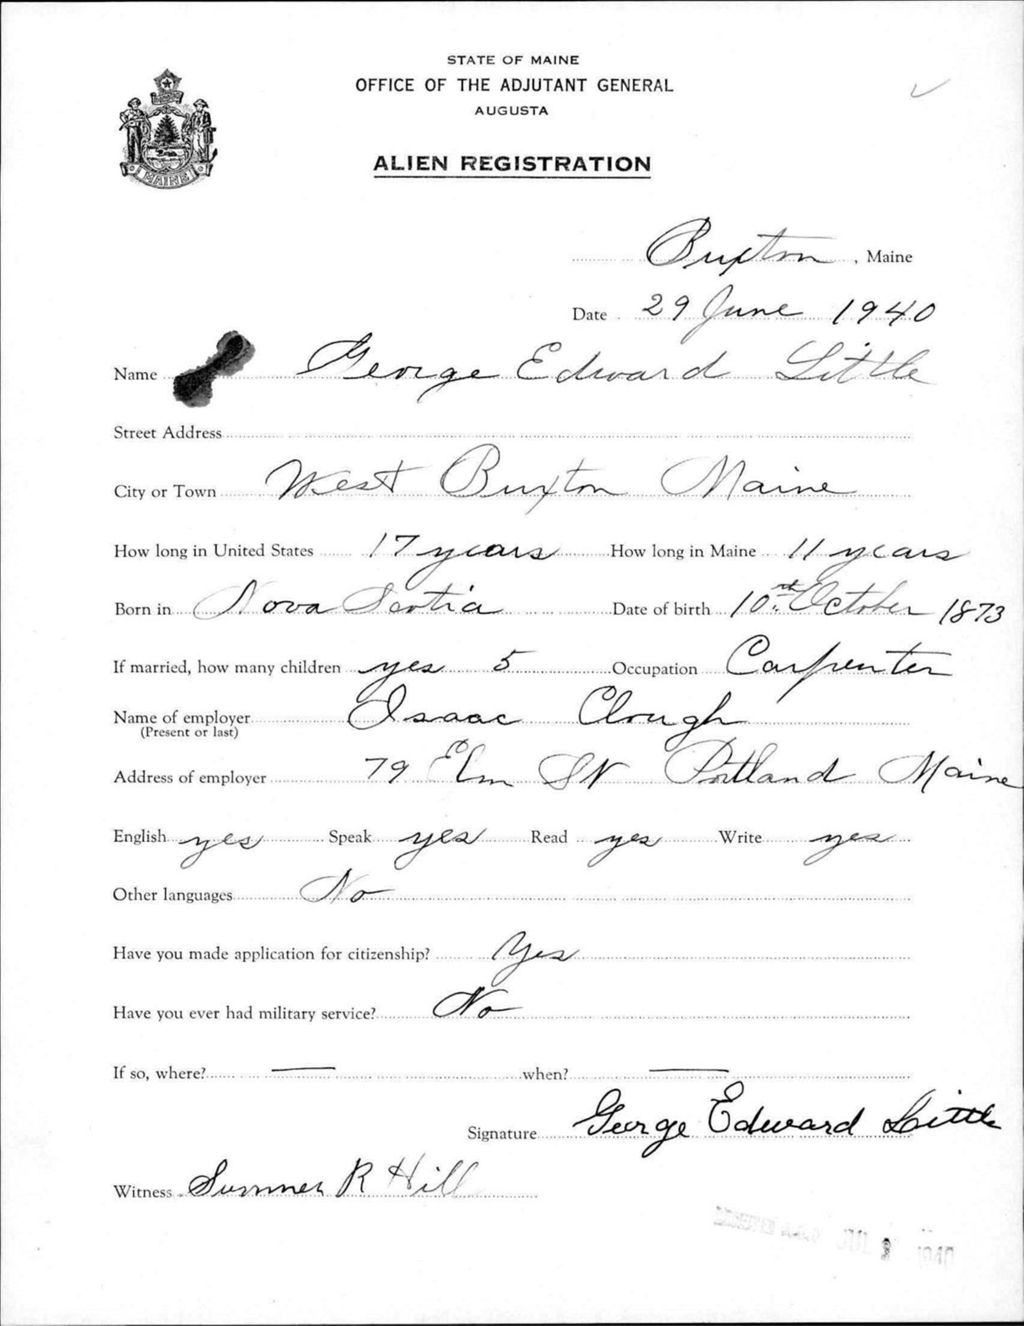 STATE OF MAINE
OFFICE OF THE ADJUTANT GENERAL
AUGUSTA
ALIEN REGISTRATION
MAINE
Buxton, Maine
Date 29 June 1940
Name George Edward Little
Street Address
City or Town West Buxton Maine
How long in United States 17 years How long in Maine 11 years
Born in Nova Scotia Date of birth 10th October 1873
If married, how many children yes 5 Occupation Carpenter
Name of employer Isaac Clough
(Present or last)
Address of employer 79 Elm St Portland Maine
English yes Speak yes Read yes Write yes
Other languages No
Have you made application for citizenship? Yes
Have you ever had military service? No
If so, where? — when? —
Signature George Edward Little
Witness Sumner R Hill